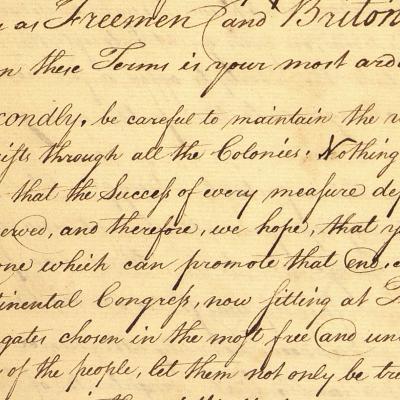 as Freemen and Briton
these Terms is your most ard
condly, be careful to maintain the
ifts through all the Colonies: Nothing
that the Succeſs of every meaſure de
erved, and therefore, we hope, that y
one which can promote that end,
tinental Congreſs, now ſitting at
gates chosen in the moſt free and un
of the people, let them not only be tre